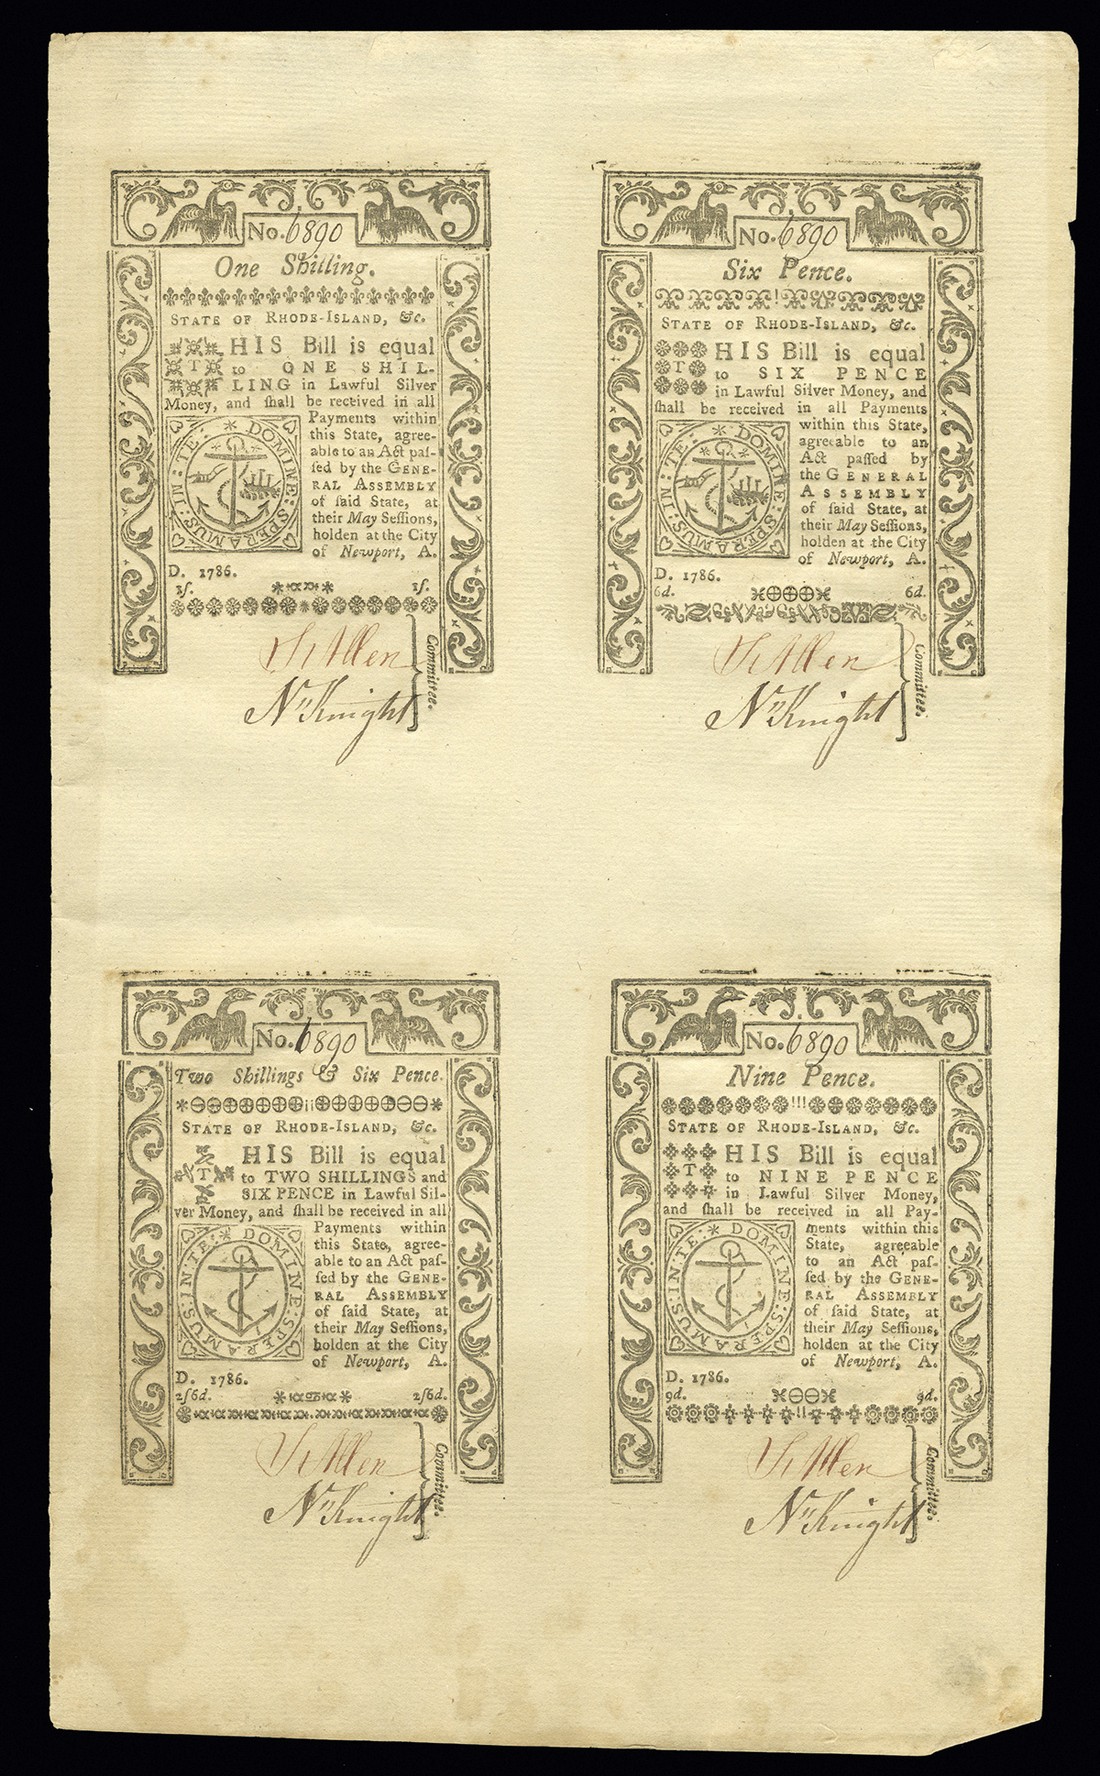 No. 6890
One Shilling.
STATE OF RHODE-ISLAND, &c.
THIS Bill is equal
to ONE SHIL-
LING in Lawful Silver
Money, and ſhall be received in all
Payments within
this State, agree-
able to an Act paſ-
ſed by the GENE-
RAL ASSEMBLY
of ſaid State, at
their May Seſſions,
holden at the City
of Newport, A.
D. 1786.
IN : TE : * DOMINE : SPERAMUS :
1ſ. 1ſ.
Sl Allen
Nn Knight
Committee.
No. 6890
Six Pence.
STATE OF RHODE-ISLAND, &c.
THIS Bill is equal
to SIX PENCE
in Lawful Silver Money, and
ſhall be received in all Payments
within this State,
agreeable to an
Act paſſed by
the GENERAL
ASSEMBLY
of ſaid State, at
their May Seſſions,
holden at the City
of Newport, A.
D. 1786.
IN : TE : * DOMINE : SPERAMUS :
6d. 6d.
Sl Allen
Nn Knight
Committee.
No. 6890
Two Shillings & Six Pence.
STATE OF RHODE-ISLAND, &c.
THIS Bill is equal
to TWO SHILLINGS and
SIX PENCE in Lawful Sil-
ver Money, and ſhall be received in all
Payments within
this State, agree-
able to an Act paſ-
ſed by the GENE-
RAL ASSEMBLY
of ſaid State, at
their May Seſſions,
holden at the City
of Newport, A.
D. 1786.
IN : TE : * DOMINE : SPERAMUS
2ſ6d. 2ſ6d.
Sl Allen
Nn Knight
Committee.
No. 6890
Nine Pence.
STATE OF RHODE-ISLAND, &c.
THIS Bill is equal
to NINE PENCE
in Lawful Silver Money,
and ſhall be received in all Pay-
ments within this
State, agreeable
to an Act paſ-
ſed by the GENE-
RAL ASSEMBLY
of ſaid State, at
their May Seſſions,
holden at the City
of Newport, A.
D. 1786.
IN : TE : * DOMINE : SPERAMUS
9d. 9d.
Sl Allen
Nn Knight
Committee.